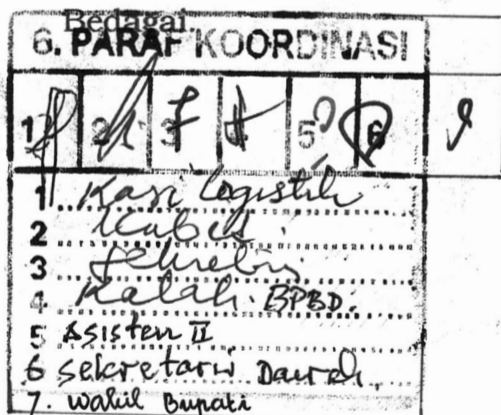 Bedagai.
6. PARAF KOORDINASI
1 2 3 4 5 6
1 Kasi logistik
2 Kabid
3 Sekretaris
4 Kalak BPBD.
5 Asisten II
6 Sekretaris Daerah.
7. Wakil Bupati